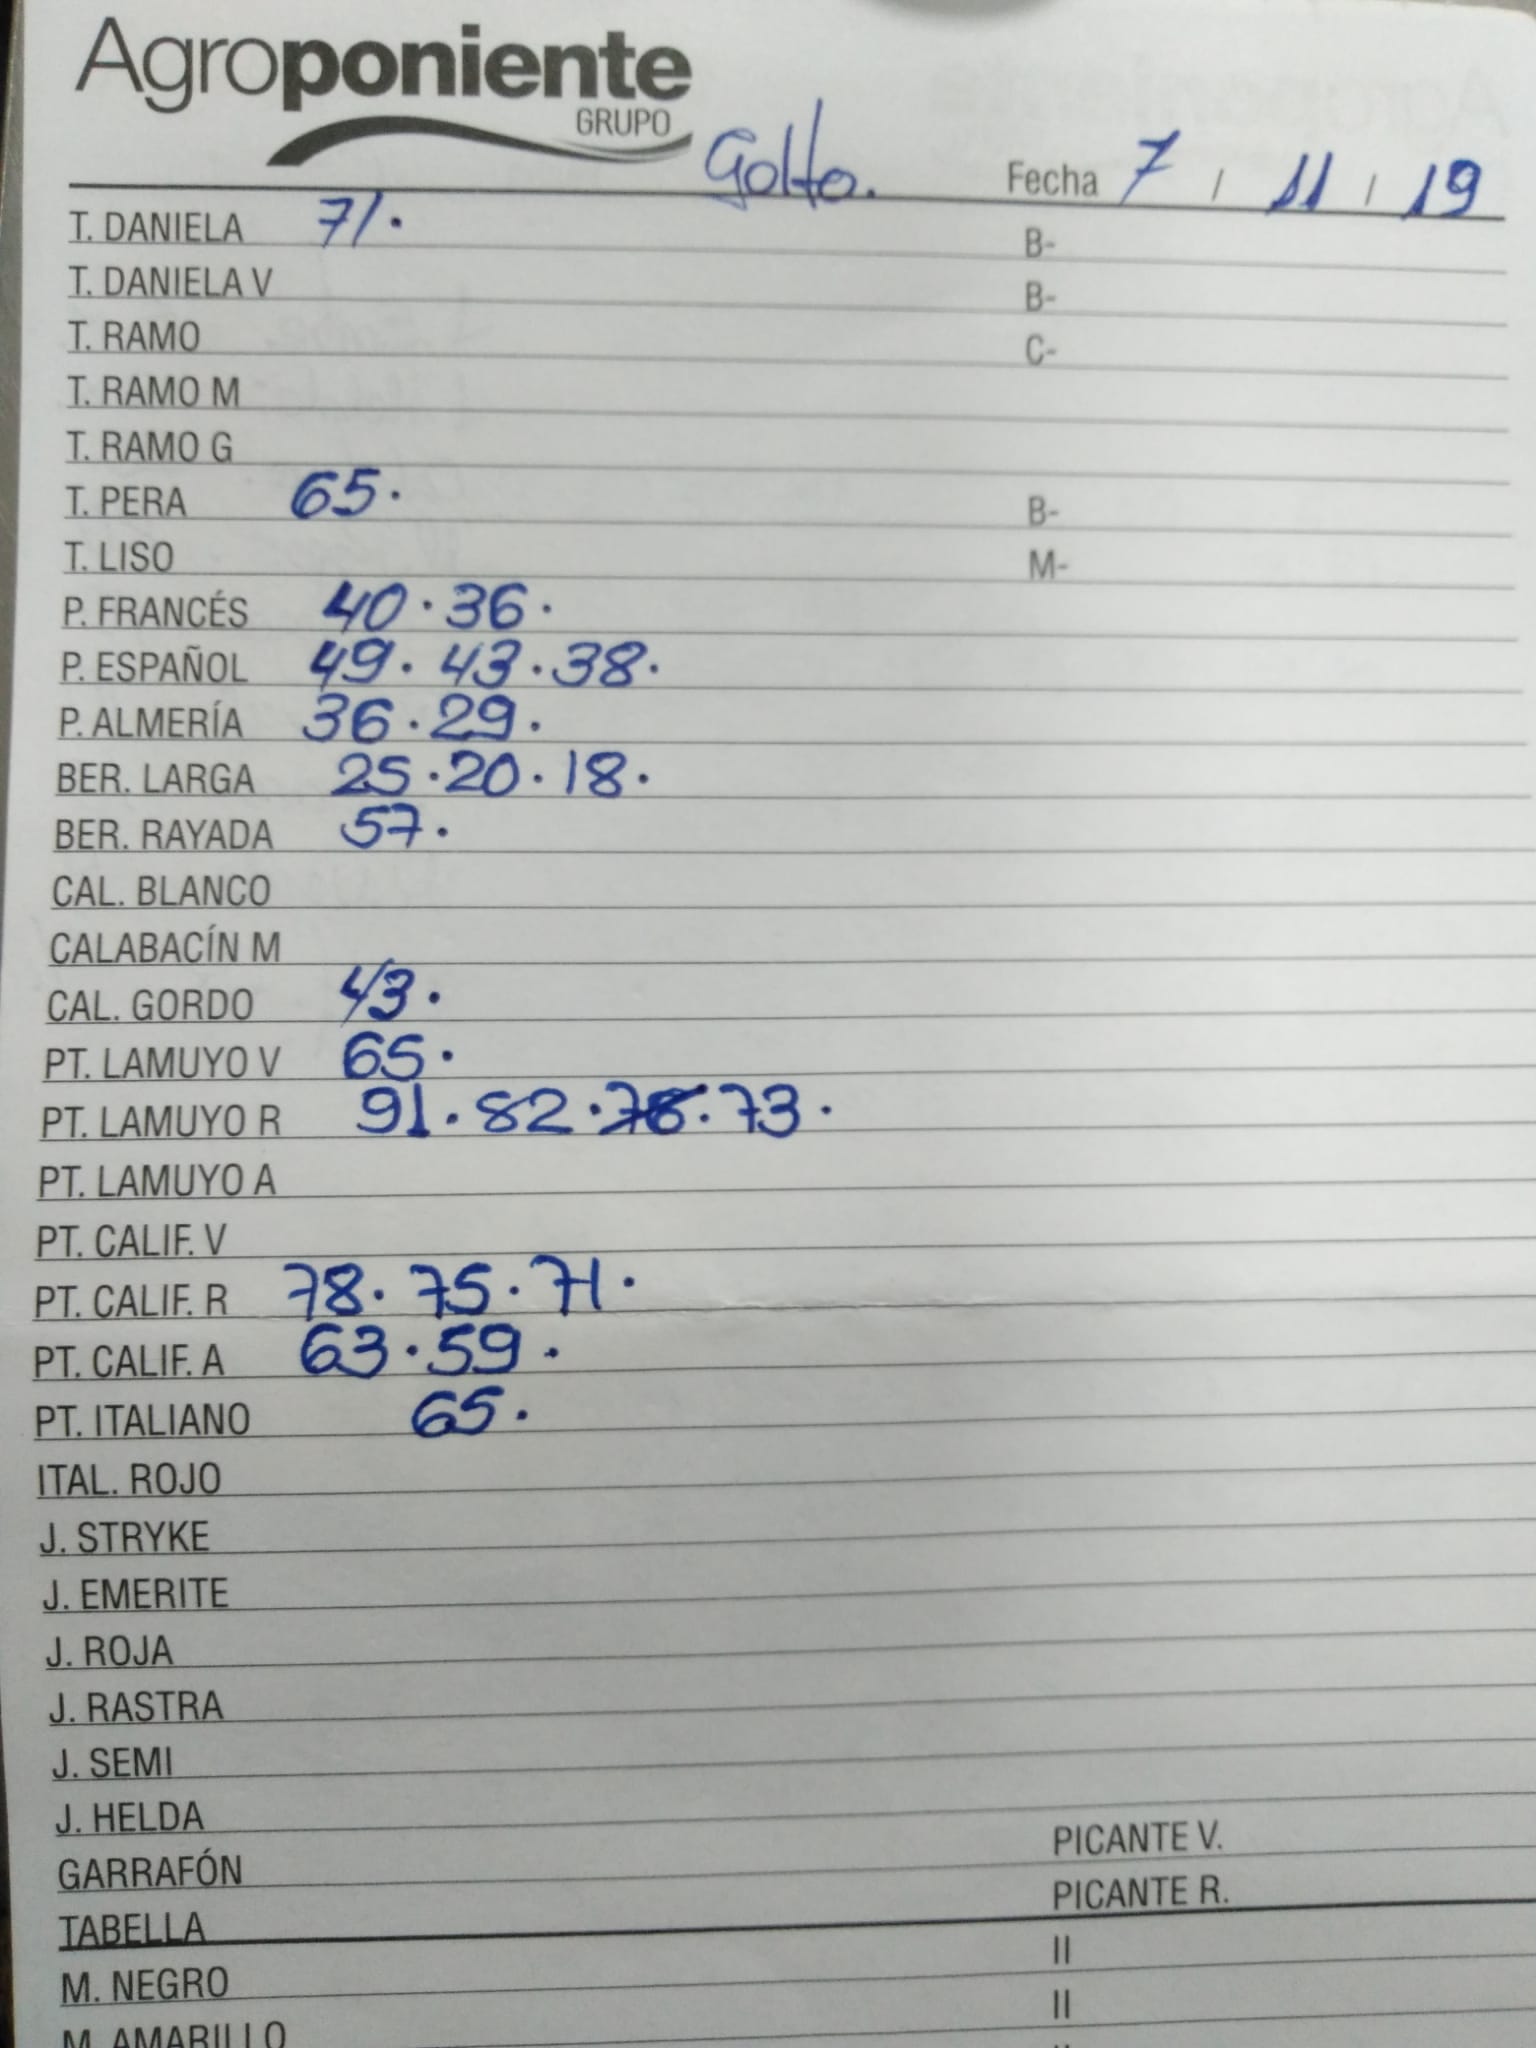 Agroponiente
GRUPO
Golfo. Fecha 7 / 11 / 19
T. DANIELA 71. B-
T. DANIELA V B-
T. RAMO C-
T. RAMO M
T. RAMO G
T. PERA 65. B-
T. LISO M-
P. FRANCÉS 40 · 36 ·
P. ESPAÑOL 49 · 43 · 38 ·
P. ALMERÍA 36 · 29 ·
BER. LARGA 25 · 20 · 18 ·
BER. RAYADA 57 ·
CAL. BLANCO
CALABACÍN M
CAL. GORDO 43 ·
PT. LAMUYO V 65 ·
PT. LAMUYO R 91 · 82 · 78 · 73 ·
PT. LAMUYO A
PT. CALIF. V
PT. CALIF. R 78 · 75 · 71 ·
PT. CALIF. A 63 · 59 ·
PT. ITALIANO 65 ·
ITAL. ROJO
J. STRYKE
J. EMERITE
J. ROJA
J. RASTRA
J. SEMI
J. HELDA PICANTE V.
GARRAFÓN PICANTE R.
TABELLA
M. NEGRO II
M. AMARILLO II